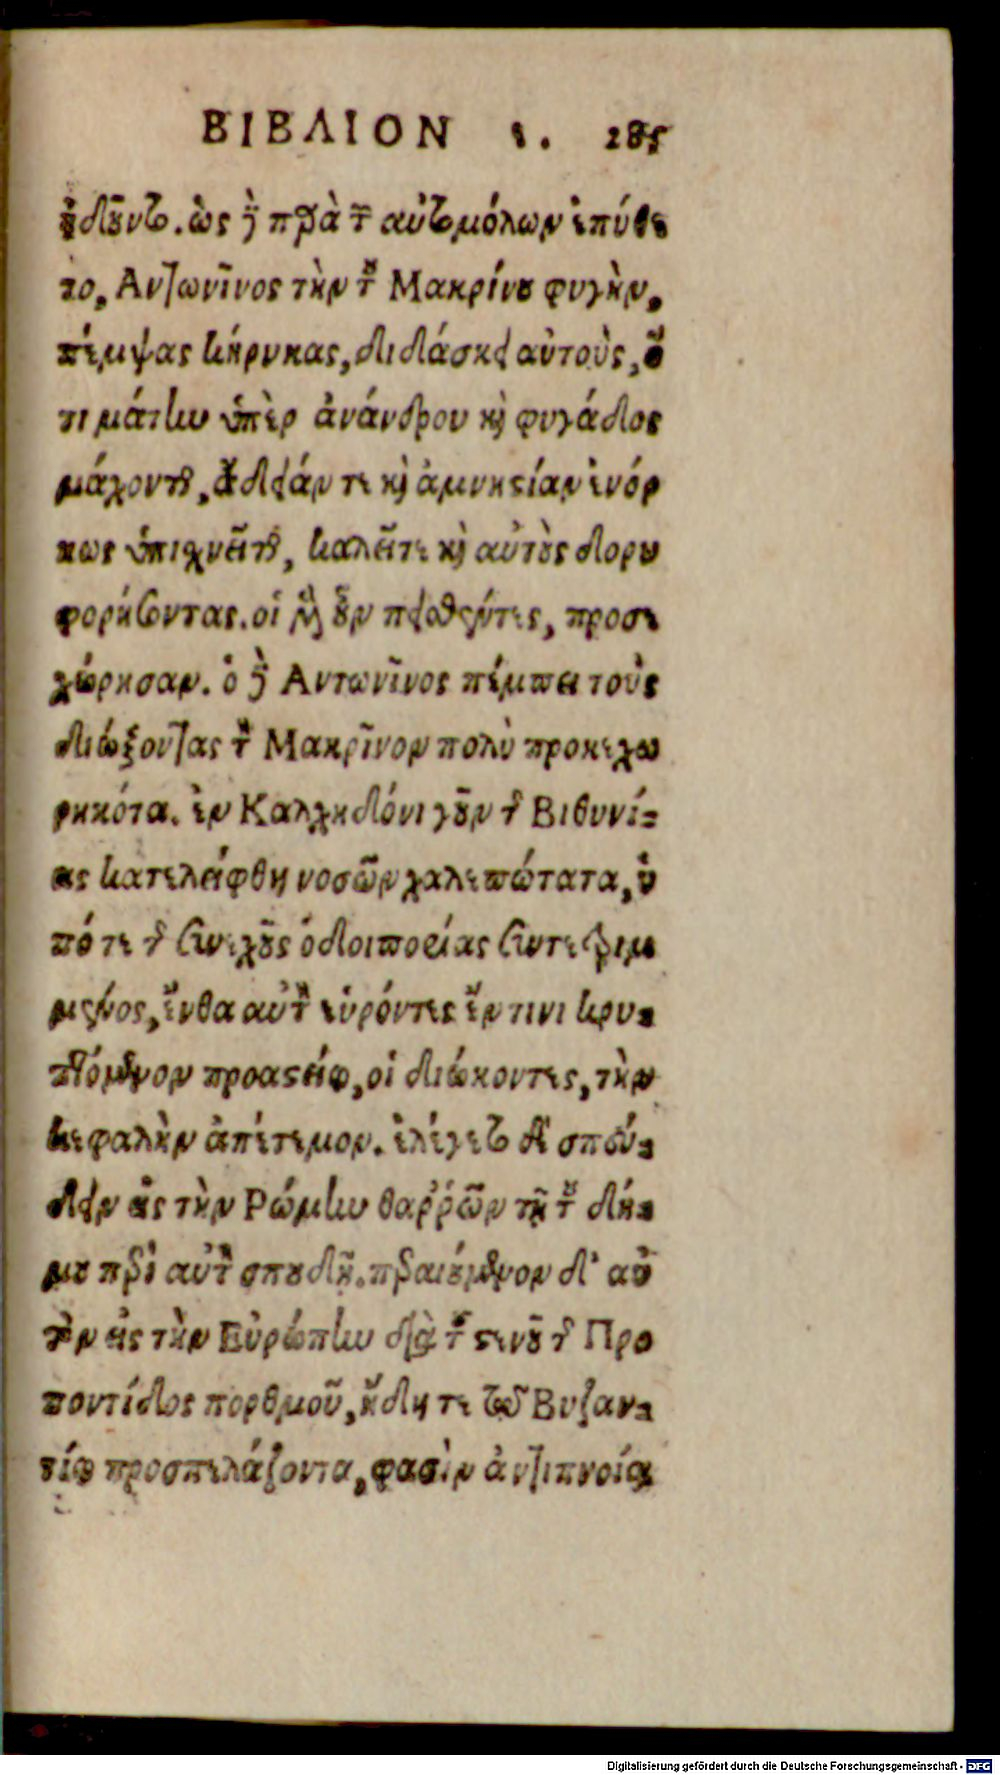 ΒΙΒΛΙΟΝ ε. 285
ᾐδοῦντο. ὡς δὲ παρὰ τῶν αὐτομόλων ἐπύθε
το, Αντωνῖνος τὴν τοῦ Μακρίνου φυγὴν,
πέμψας κήρυκας, διδάσκει αὐτοὺς, ὅ
τι μάτην ὑπὲρ ἀνάνδρου καὶ φυγάδος
μάχονται, ἄδειάν τε καὶ ἀμνηστίαν ἐνόρ
κως ὑπισχνεῖται, καλεῖτε καὶ αὐτοὺς δορυ
φορήσοντας. οἱ μὲν οὖν πεισθέντες, προσε
χώρησαν. ὁ δὲ Αντωνῖνος πέμπει τοὺς
διώξοντας τὸν Μακρῖνον πολὺ προκεχω
ρηκότα. ἐν Καλχηδόνι γοῦν τῆς Βιθυνί-
ας κατελείφθη νοσῶν χαλεπώτατα, ὑ
πό τε τῆς συνεχοῦς ὁδοιπορίας συντετριμ
μένος, ἔνθα αὐτὸν εὑρόντες ἔν τινι κρυ-
πτόμενον προαστείῳ, οἱ διώκοντες, τὴν
κεφαλὴν ἀπέτεμον. ἐλέγετο δὲ σπεύ-
δειν εἰς τὴν Ρώμην θαῤῥῶν τῇ τοῦ δή-
μου περὶ αὐτὸν σπουδῇ. περαιούμενον δ' αὐ
τὸν εἰς τὴν Εὐρώπην διὰ τοῦ στενοῦ τῆς Προ
ποντίδος πορθμοῦ, ἤδη τε τῷ Βυζαν-
τίῳ προσπελάζοντα, φασὶν ἀντιπνοίᾳ
Digitalisierung gefördert durch die Deutsche Forschungsgemeinschaft - DFG